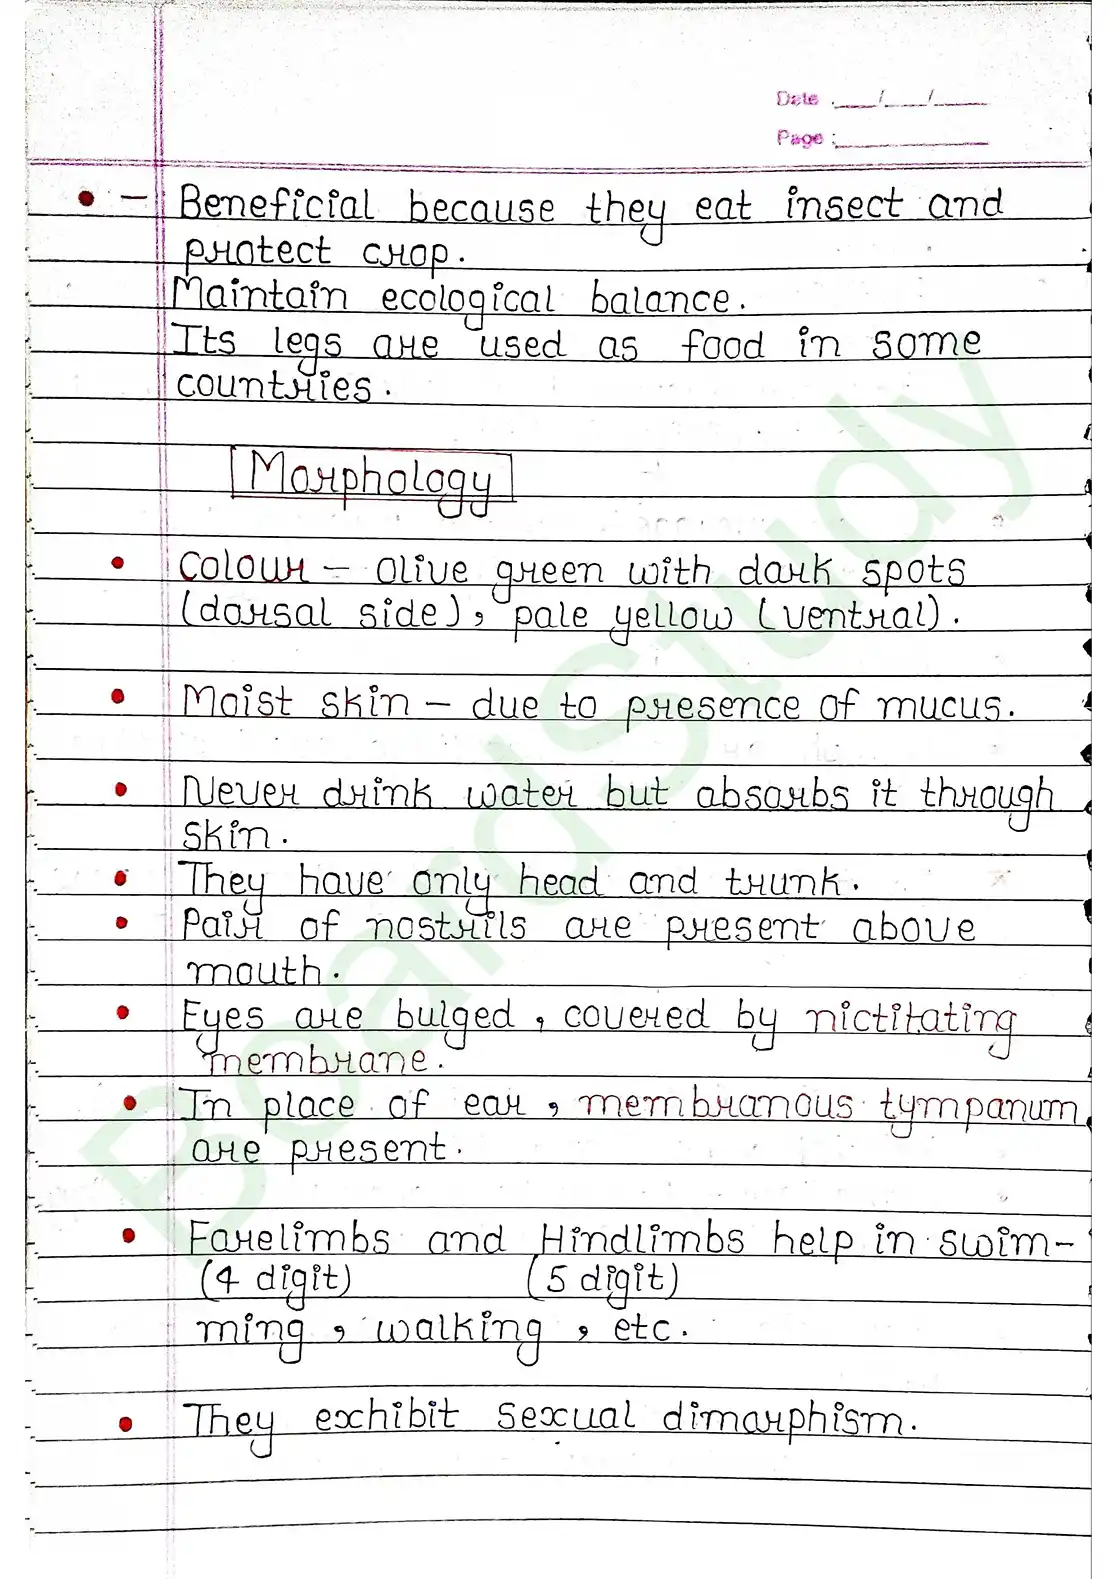 Date : ___/___/____
Page : ____________
• – Beneficial because they eat insect and
protect crop.
Maintain ecological balance.
Its legs are used as food in some
countries.
Morphology
• Colour – Olive green with dark spots
(dorsal side), pale yellow (ventral).
• Moist skin – due to presence of mucus.
• Never drink water but absorbs it through
skin.
• They have only head and trunk.
• Pair of nostrils are present above
mouth.
• Eyes are bulged, covered by nictitating
membrane.
• In place of ear, membranous tympanum
are present.
• Forelimbs and Hindlimbs help in swim-
(4 digit) (5 digit)
ming, walking, etc.
• They exhibit sexual dimorphism.
BoardStudy